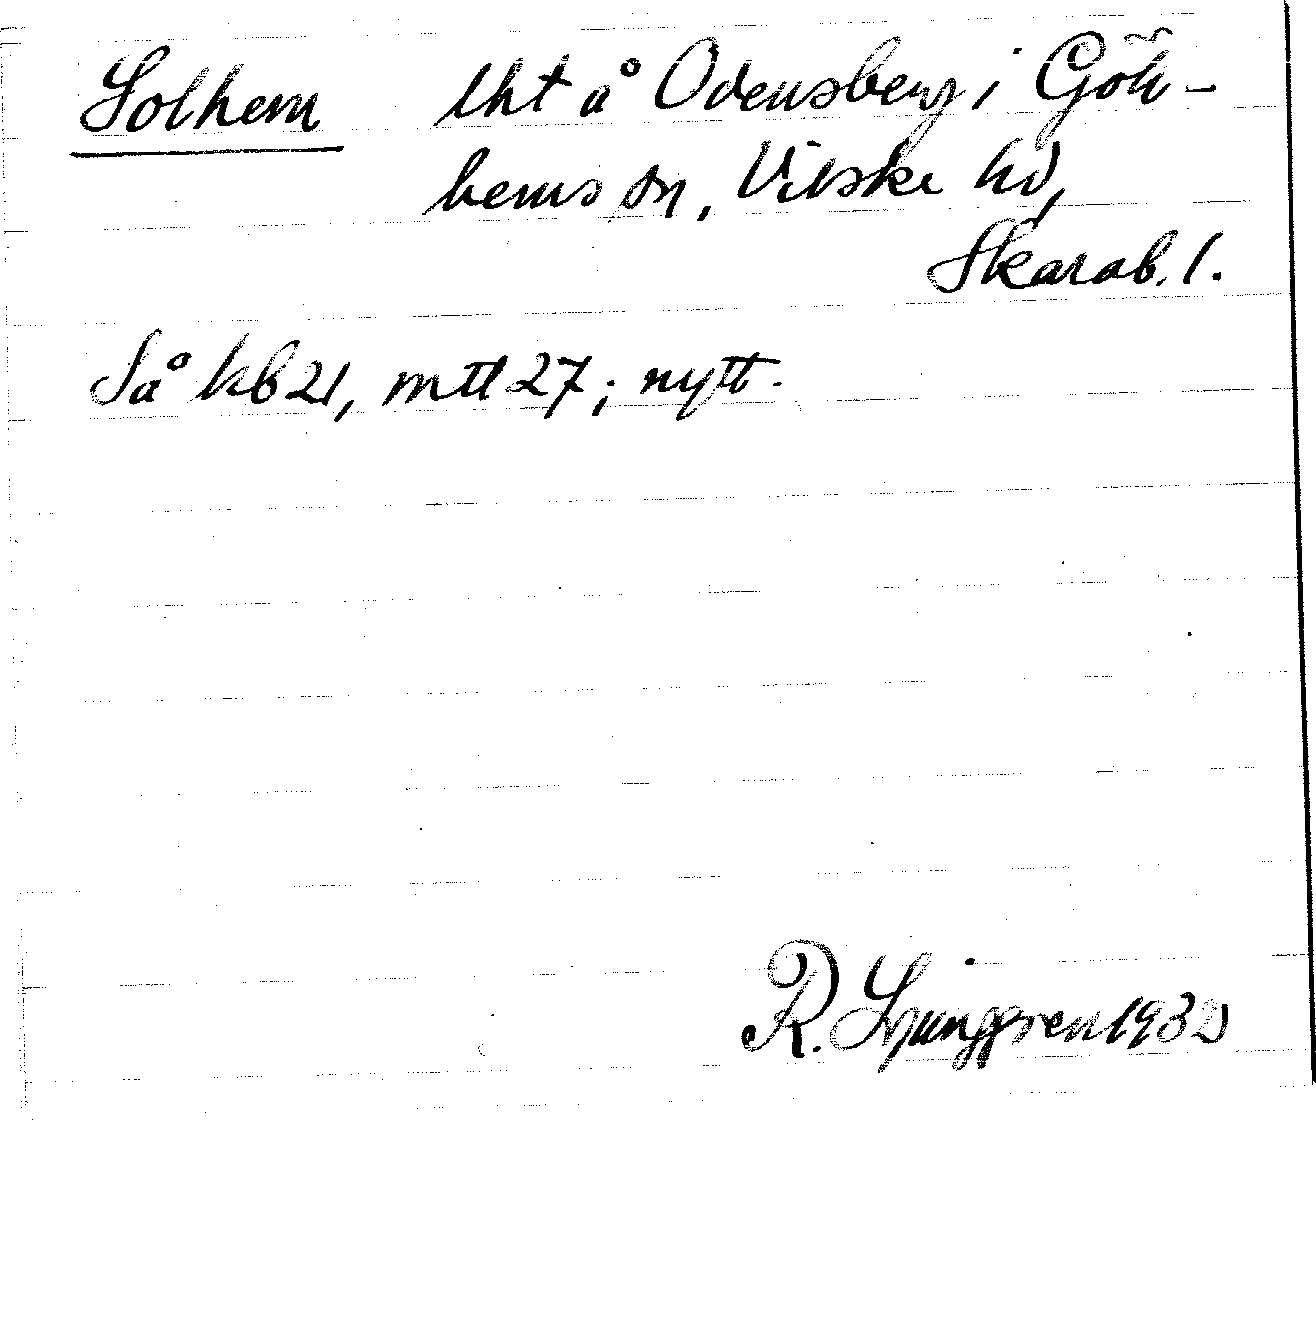 Solhem lht å Odensberg i Gök-
hems sn, Vilske hd,
Skarab. l.
Så kb 21, mtl 27; nytt.
R. Ljunggren 1932